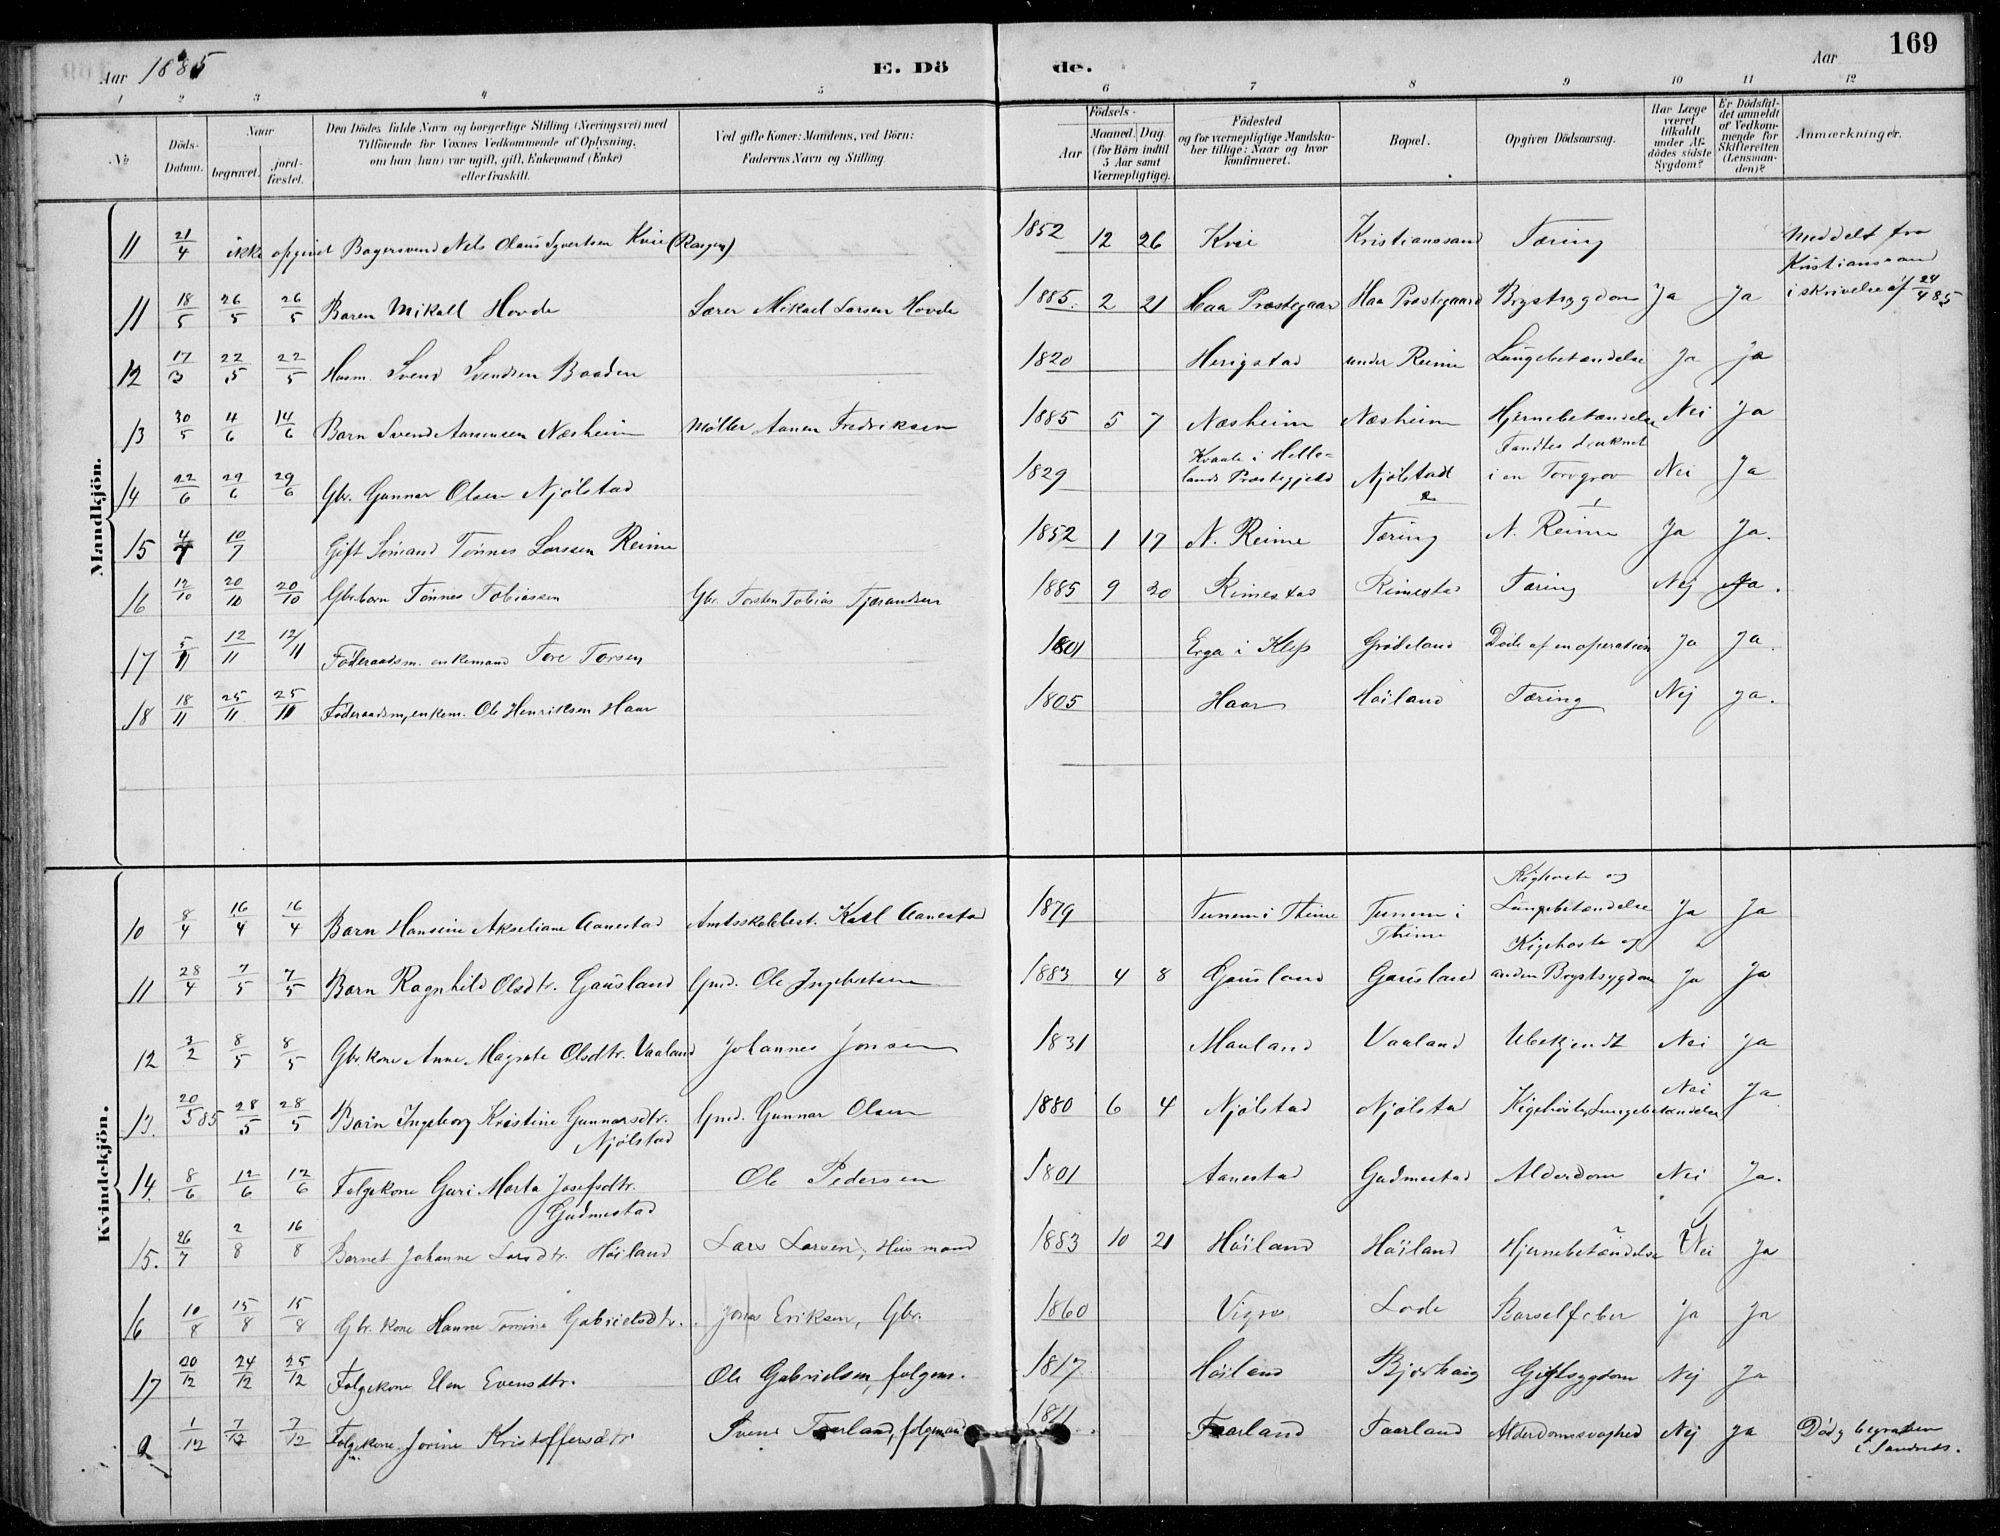 Aar 1885
E. Dö
de.
Aar
169
1 2 3 4 5 6 7 8 9 10 11 12
№
Döds-Datum.
Naar
begravet.
jord-fæstet.
Den Dödes fulde Navn og borgerlige Stilling (Næringsvei) med
Tilföiende for Voxnes Vedkommende af Oplysning,
om han (hun) var ugift, gift, Enkemand (Enke)
eller fraskilt.
Ved gifte Koner: Mandens, ved Börn:
Faderens Navn og Stilling.
Födsels-
Aar
Maaned. Dag.
(for Börn indtil
5 Aar samt
Værnepligtige).
Födested
og for værnepligtige Mandska-
ber tillige: Naar og hvor
konfirmeret.
Bopæl.
Opgiven Dödsaarsag.
Har Læge
været
tilkaldt
under Af-
dödes sidste
Sygdom?
Er Dödsfal-
det anmeldt
af Vedkom-
mende for
Skifteretten
(Lensman-
den)?
Anmærkninger.
Mandkjön.
11 21/4 ikke opgivet Bagersvend Nils Olaus Syvertsen Kvie 1852 12 26 Kvie Kristianssand Tæring Meddelt fra Kristianssand i skrivelse af 24/4 85
11 18/5 26/5 26/5 Barn Mikall Hovda Lærer Mikael Larsen Hovda 1885 2 21 Haa Præstegaar Haa Præstegaard Brystsygdom Ja Ja
12 17/3 22/5 22/5 Husm. Svend Svendsen Baaden 1820 Herigstad under Reime Lungebetændelse Ja Ja
13 30/5 4/6 14/6 Barn Svend Aanensen Næsheim Møller Aanen Fredriksen 1885 5 7 Næsheim Næsheim Hjernebetændelse Nei Ja
14 22/6 29/6 29/6 Gbr. Gunnar Olsen Njølstad 1829 Kvaale i Helle-lands Præstegjeld Njølstad Fandtes druknet i en Torvgrov Nei Ja
15 4/7 10/7 Gift Sömand Tönnes Larssen Reime 1852 1 17 N. Reime 2 Tæring 1 N. Reime Ja Ja.
16 12/10 20/10 20/10 Gbr.barn Tönnes Tobiassen Gbr. Torsten Tobias Tjærandsen 1885 9 30 Rimestad Rimestad Tæring Nej Ja.
17 5/11 12/11 12/11 Föderaadsm. enkemand Tore Torsen 1801 Erga i Klep Grødeland Döde af en operation Ja Ja.
18 18/11 25/11 25/11 Föderaadsm, enkem. Ole Henriksen Haar 1805 Haar Höiland Tæring Nej Ja.
Kvindekjön.
10 8/4 16/4 16/4 Barn Hansine Akseliane Aanestad Amtsskolebest. Karl Aanestad 1879 Tunem i Thime Tunem i Thime Kighoste og Lungebetændelse Ja Ja
11 28/4 7/5 7/5 Barn Ragnhild Olsdtr. Gausland Gmd. Ole Ingebretsen 1883 4 8 Gausland Gausland Kigehoste og anden Brystsygdom Ja Ja
12 3/2 8/5 8/5 Gbr. kone Anne Magrete Olsdtr. Vaaland Johannes Jonsen 1831 Mauland Vaaland Ubekjendt Nei Ja
13. 20/5 85 28/5 28/5 Barn Ingeborg Kristine Gunnarsdtr. Njølstad Gmd. Gunnar Olsen 1880 6 4 Njølstad Njølstad Kigehoste, Lungebetændelse Nei Ja
14. 8/6 12/6 12/6 Folgekone Guri Marta Josefsdtr. Gudmestad Ole Pedersen 1801 Aanestad Gudmestad Alderdom Nei Ja.
15. 26/7 2/8 16/8 Barnet Johanne Larsdtr. Höiland Lars Larsen, Husmand 1883 10 21 Höiland Höiland Hjernebetændelse Nei Ja
16 10/8 15/8 15/8 Gbr. kone Hanne Tomine Gabrielsdtr. Jonas Eriksen, Gbr. 1860 Vigre Lode Barselfeber Ja Ja
17 20/12 24/12 25/12 Folgekone Elen Evensdtr. Ole Gabrielsen, folgem. 1817 Höiland Bjorhaug Gigtsygdom Nej Ja
1/12 7/12 7/12 Folgekone Jorine Kristoffersdtr Svend Faarland, folgemand 1811 Faarland Faarland Alderdomssvaghed Nej Ja Död og begraven i Sandnes.